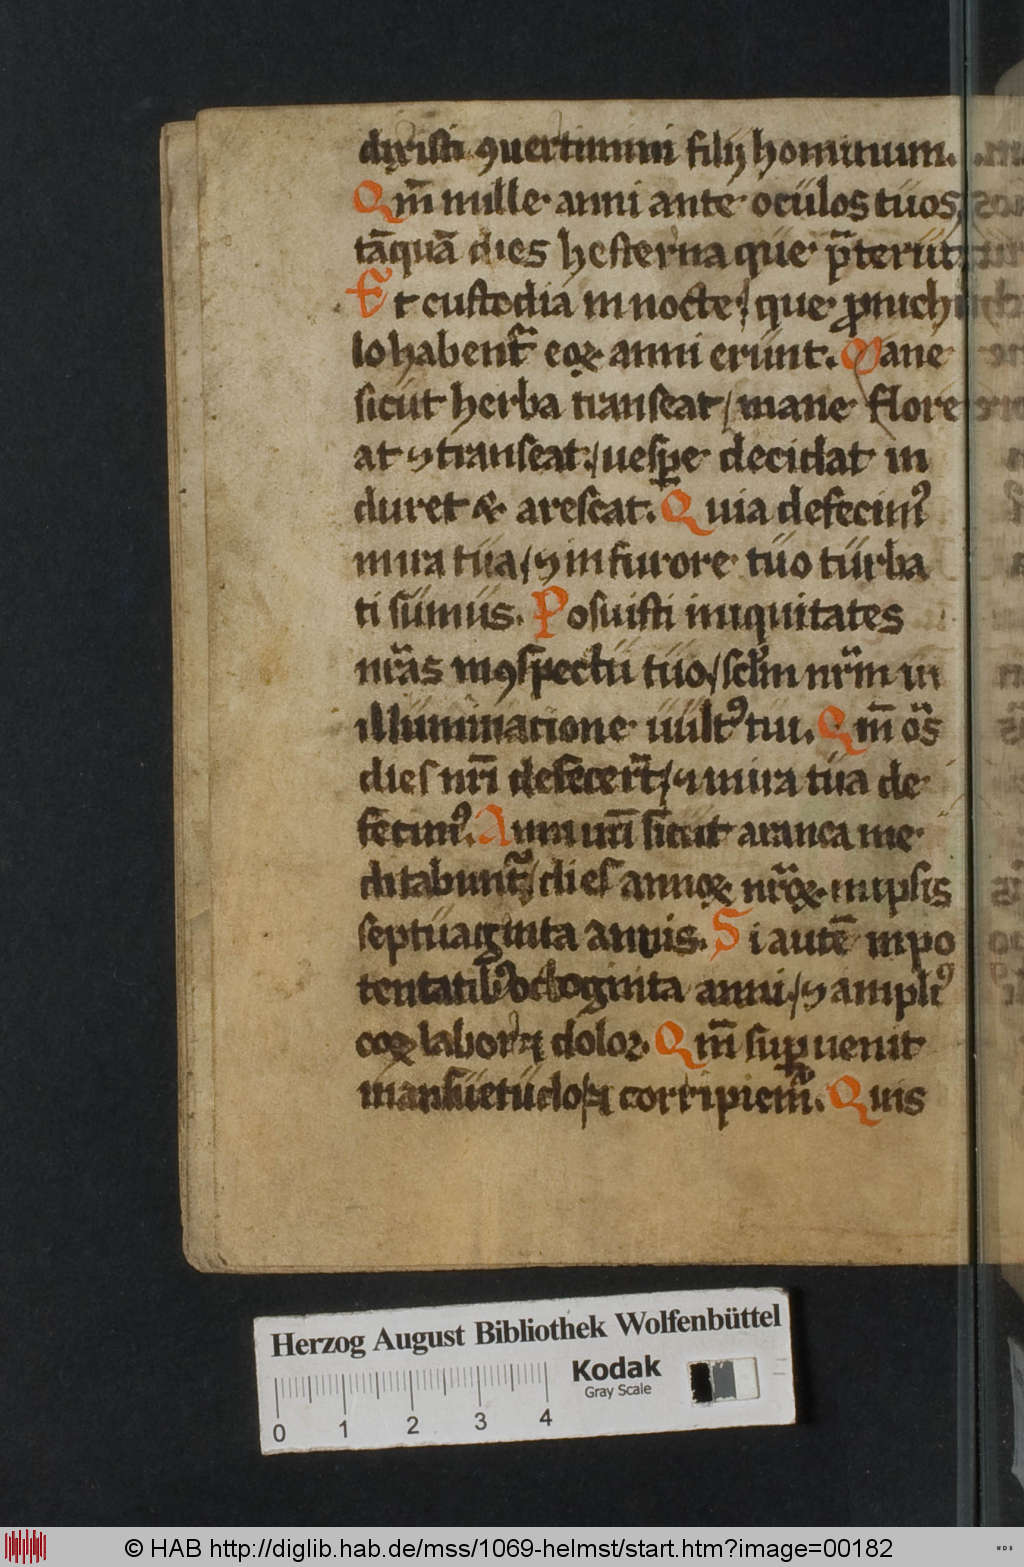 dixisti ꝯuertimini filij hominum.
Qm̄ mille anni ante oculos tuos
tāquā dies hesterna que p̄teriit
Et custodia in nocte / que ꝓ nichi
lo habent᷑ eoꝝ anni erunt. Mane
sicut herba transeat / mane flore
at ⁊ transeat / uesꝑe decidat in
duret & arescat. Quia defecimꝰ
in ira tua / ⁊ in furore tuo turba
ti sumus. Posuisti iniquitates
nr̄as in ꝯspectu tuo / sclm nr̄m in
illuminacione uultꝰ tui. Qm̄ oēs
dies nr̄i defecert̄ / ⁊ in ira tua de
fecimꝰ. Anni nr̄i sicut aranea me
ditabunt᷑ / dies annoꝝ nr̄oꝝ in ipsis
septuaginta annis. Si autē in po
tentatibꝰ octoginta anni / ⁊ ampliꝰ
eoꝝ labor ⁊ dolor. Qm̄ suꝑuenit
mansuetudo / ⁊ corripiem᷑. Quis
Herzog August Bibliothek Wolfenbüttel
Kodak
Gray Scale
0 1 2 3 4
© HAB http://diglib.hab.de/mss/1069-helmst/start.htm?image=00182